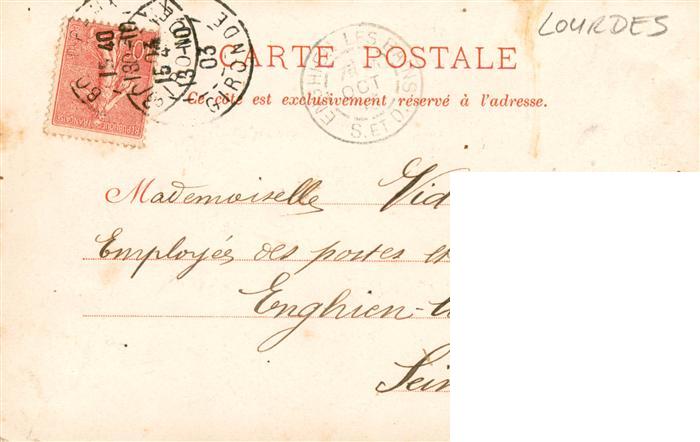 LOURDES
CARTE POSTALE
Ce côté est exclusivement réservé à l'adresse.
GIRONDE
15 40
03
ENGHIEN LES BAINS
OCT
S. ET O.
Mademoiselle Vid
Employée des postes et
Enghien-
Sein